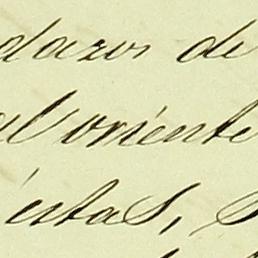 dazos de
al oriente
éstas,